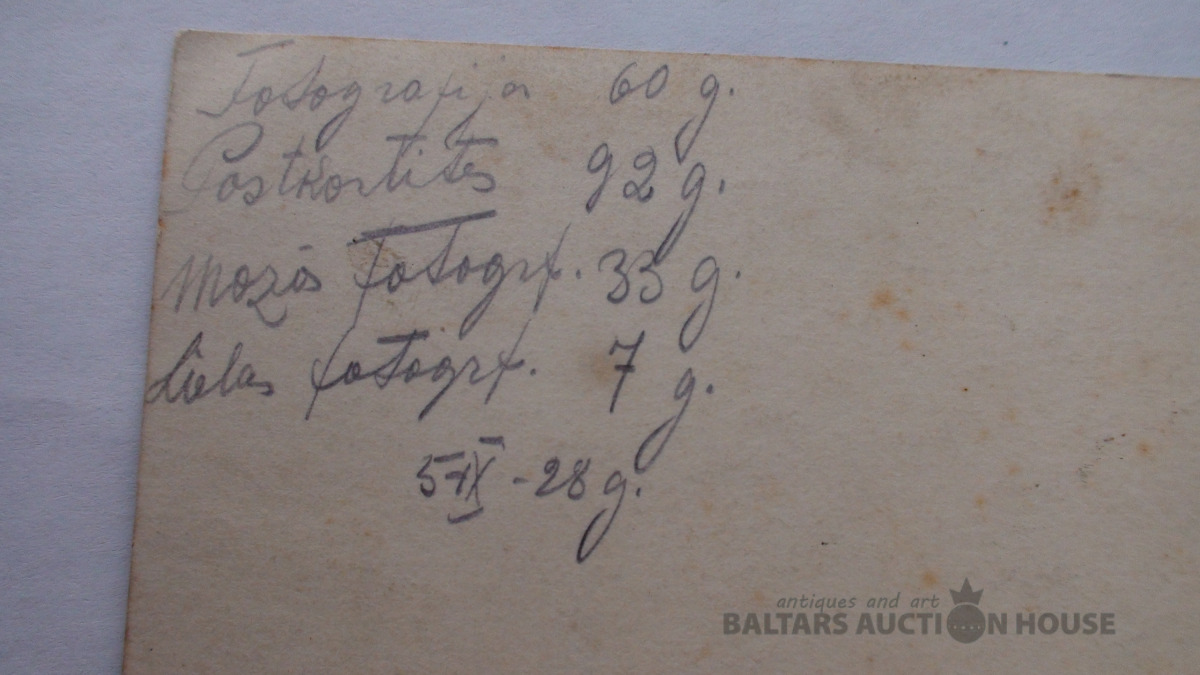 Fotografija 60 g.
Postkartites 92 g.
Mazās fotogrf. 33 g.
Lielas fotogrf. 7 g.
5 IX - 28 g.
antiques and art
BALTARS AUCTION HOUSE